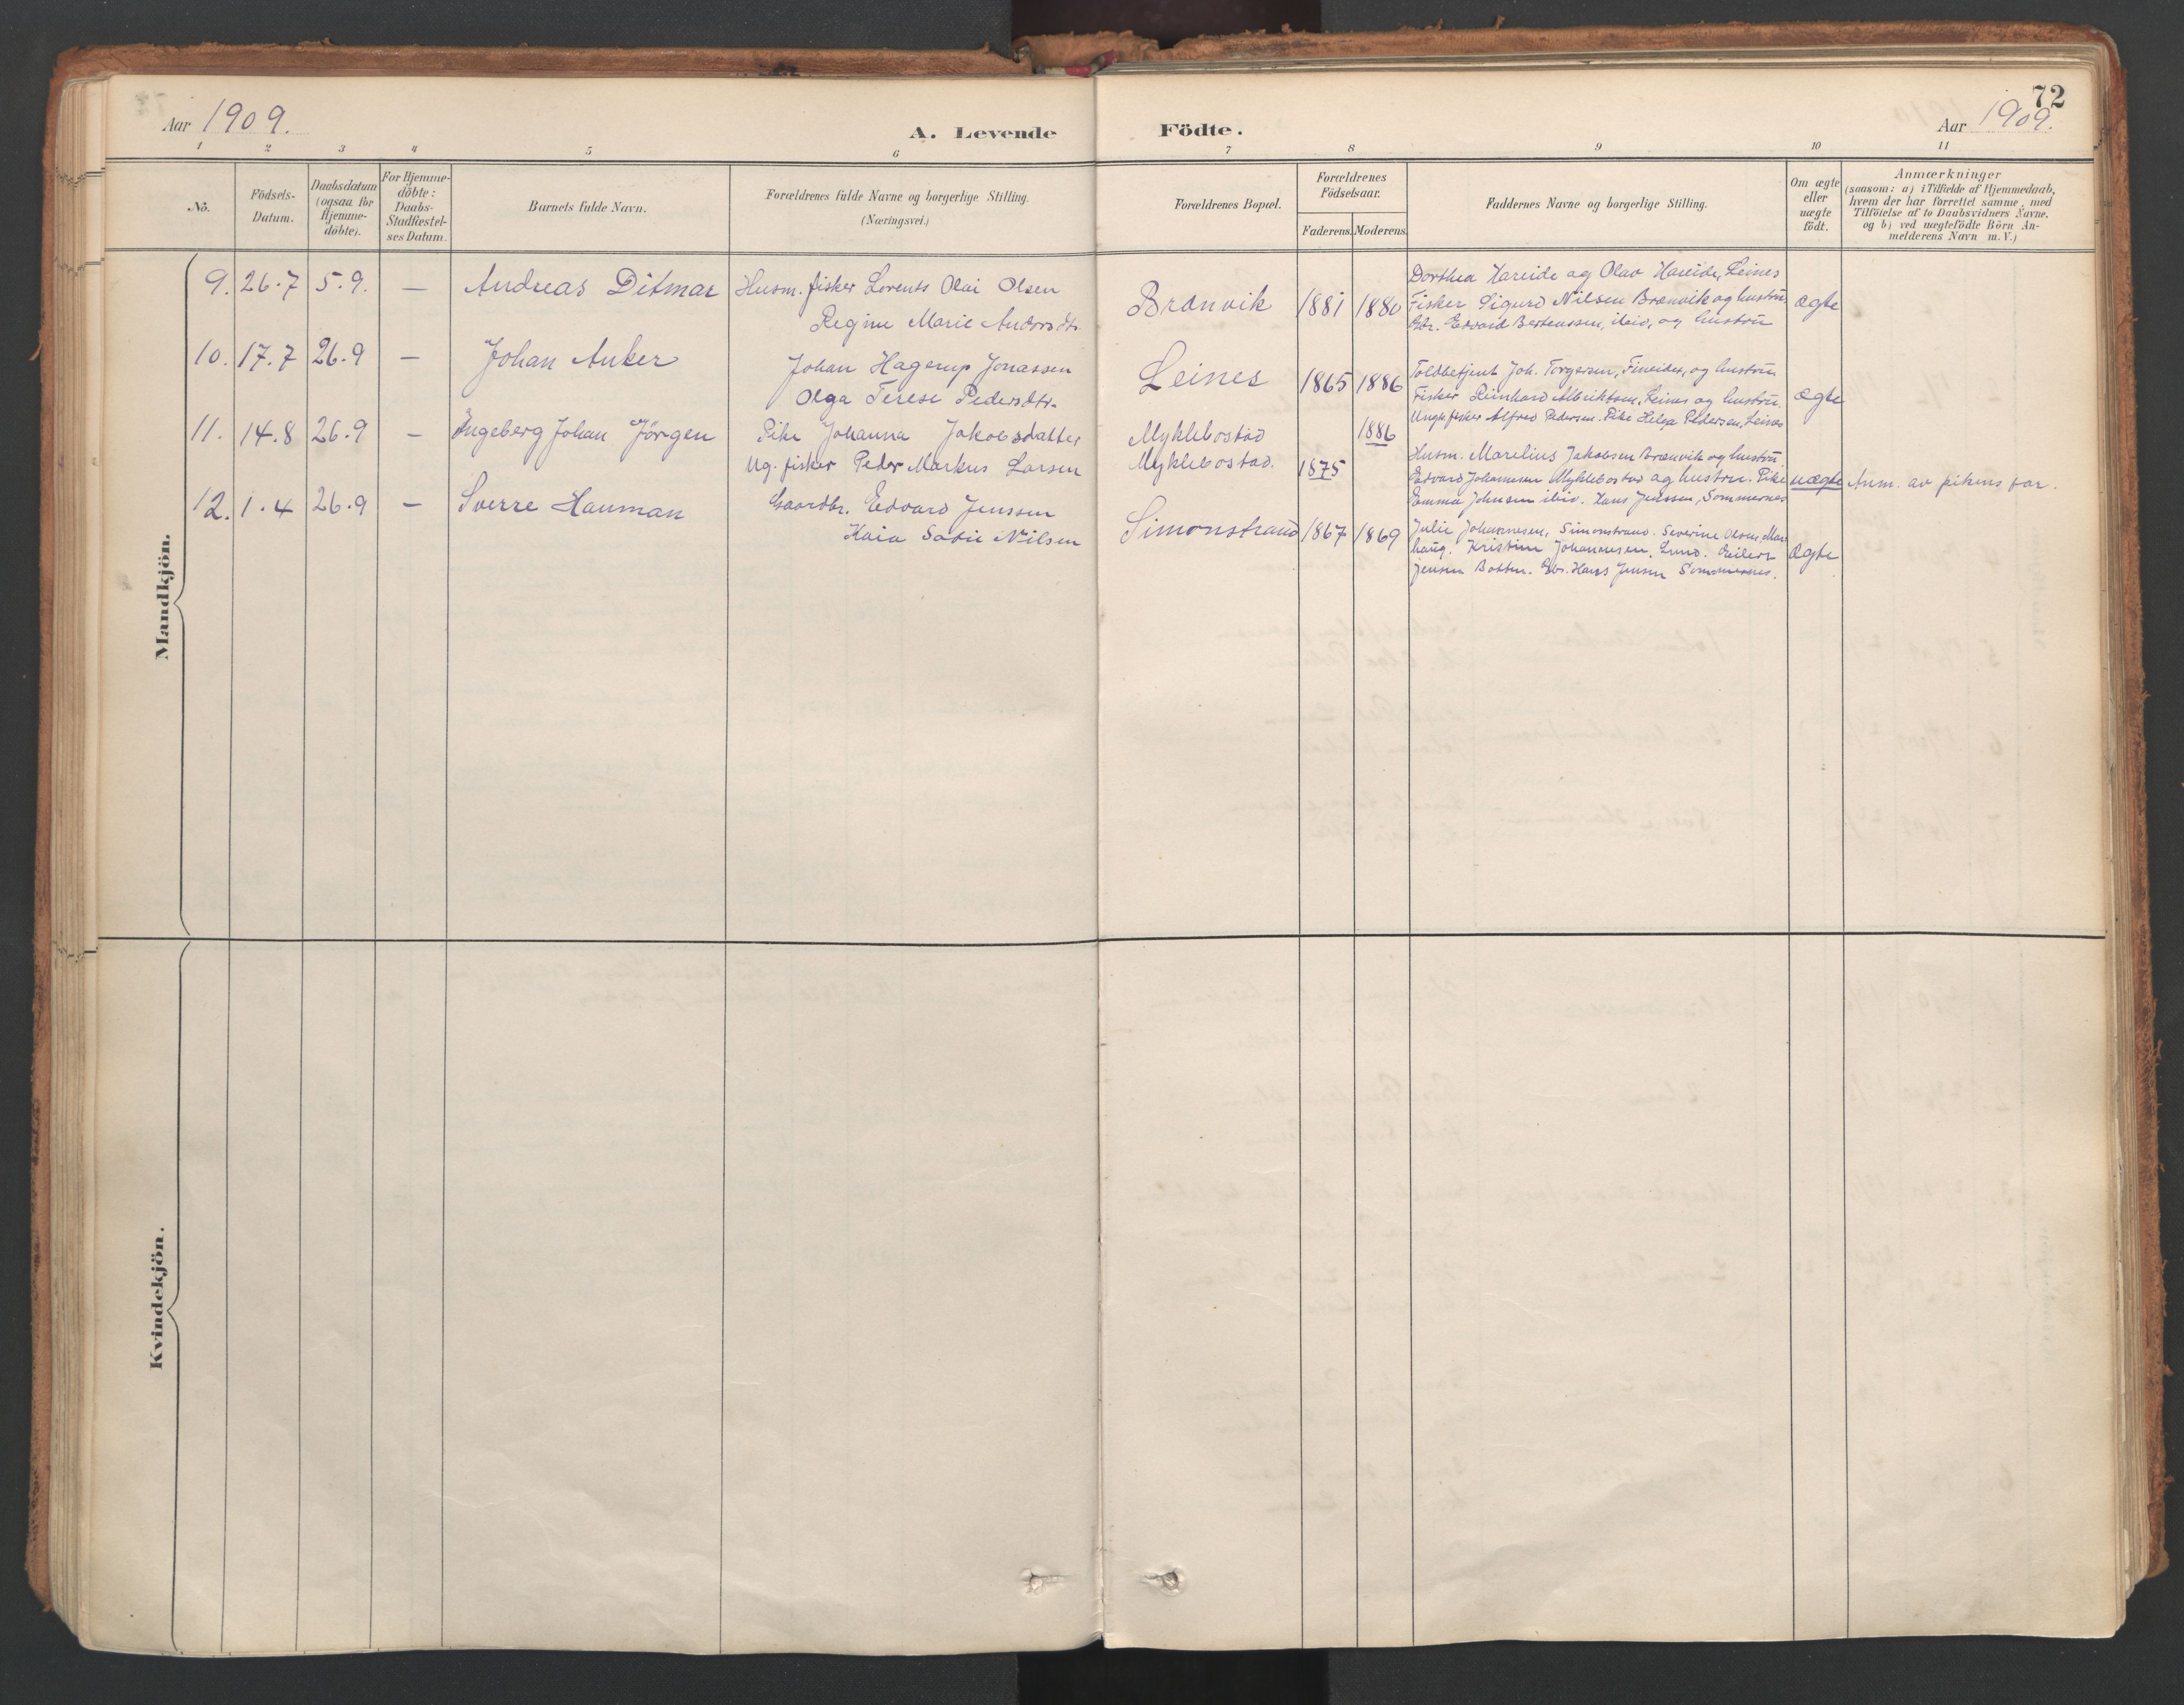 72
Aar 1909.
A. Levende Födte.
Aar 1909.
1 2 3 4 5 6 7 8 9 10 11
No.
Födsels-Datum.
Daabsdatum (ogsaa for Hjemme-döbte).
For Hjemme-döbte: Daabs-Stadfæstel-ses Datum.
Barnets fulde Navn.
Forældrenes fulde Navne og borgerlige Stilling.
(Næringsvei.)
Forældrenes Bopæl.
Forældrenes Födselsaar.
Faderens. Moderens.
Faddernes Navne og borgerlige Stilling.
Om ægte eller uægte födt.
Anmærkninger
(saasom: a) i Tilfælde af Hjemmedaab,
hvem der har forrettet samme, med
Tilföielse af to Daabsvidners Navne,
og b) ved uægtefödte Börn An-
melderens Navn m. V.)
Mandkjön.
9. 26.7 5.9. — Andreas Ditmar
Husm. fisker Lorents Olai Olsen
Regine Marie Andersdtr.
Brænvik 1881 1880
Dorthea Hareide og Olav Hareide, Leines
Fisker Sigurd Nilsen Brænvik og hustru
Gbr. Edvard Bertenssen, ibid, og hustru
ægte
10. 17.7 26.9 — Johan Anker
Johan Hagerup Jonassen
Olga Terese Pedersdtr.
Leines 1865 1886
Toldbetjent Joh. Torgersen, Fineidet, og hustru
Fisker Reinhard Albriktsen, Leines og hustru.
Ungk. fisker Alfred Pedersen. Pike Helga Pedersen, Leines
ægte
11. 14.8 26.9 — Ingeberg Johan Jörgen
Pike Johanna Jakobsdatter
Ug. fisker Peder Markus Larsen
Myklebostad 1886
Myklebostad. 1875
Husm. Marelius Jakobsen Brænvik og hustru
Edvard Johannesen Myklebostad og hustru. Pike
Emma Johnsen ibid. Hans Jenssen, Sommernes
uægte
Anm. av pikens far.
12. 1.4 26.9 — Sverre Hauman
Gaardbr. Edvard Jenssen
Kaia Sofie Nilsen
Simonstrand 1867 1869
Julie Johannesen, Simonstrand. Severine Olsen,
haug. Kristine Johannesen, Lund. Eilert
Jensen Botten. Gbr. Hans Jensen Sommernes.
Ægte
Kvindekjön.